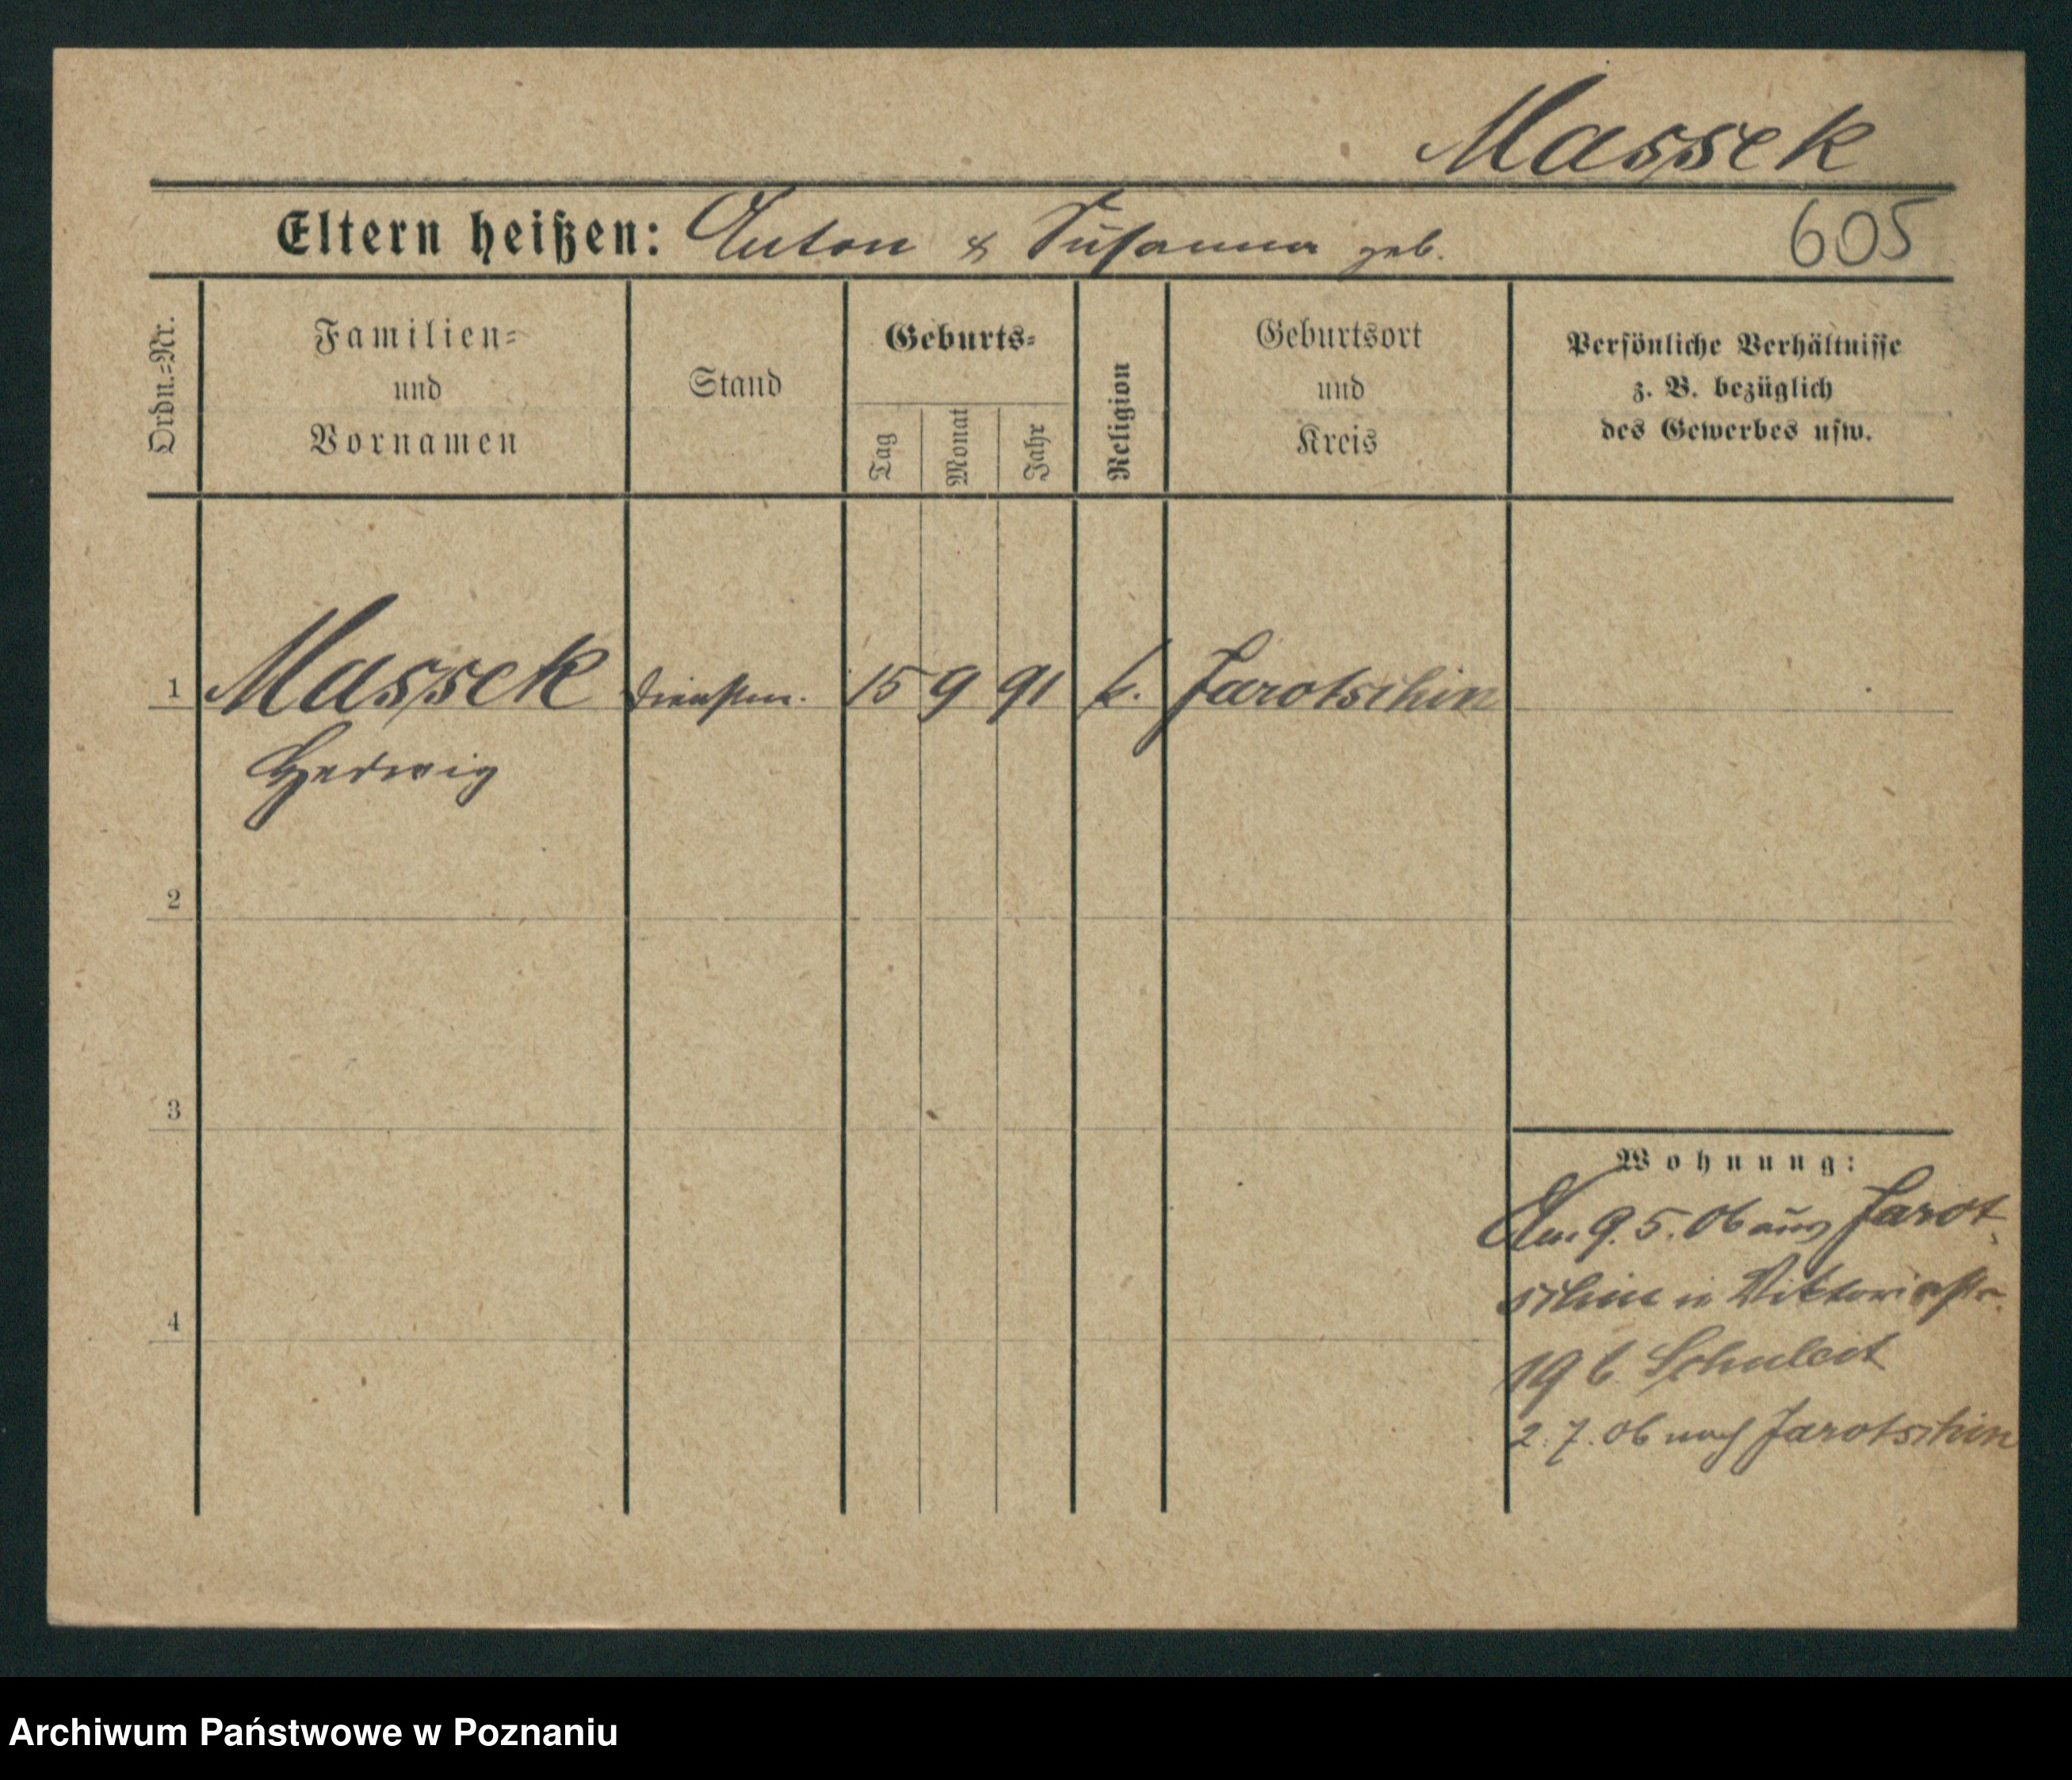 Massek
Eltern heißen: Anton & Susanna geb.
605
Ordn.-Nr.
Familien-
und
Vornamen
Stand
Geburts-
Tag
Monat
Jahr
Religion
Geburtsort
und
Kreis
Persönliche Verhältnisse
z. B. bezüglich
des Gewerbes usw.
1 Massek Dienstm. 15 9 91 k. Jarotschin
Hedwig
2
3
4
Wohnung:
Am 9.5.06 aus Jarot
schin in Viktoriastr.
19 b Schuleit
2.7.06 nach Jarotschin
Archiwum Państwowe w Poznaniu